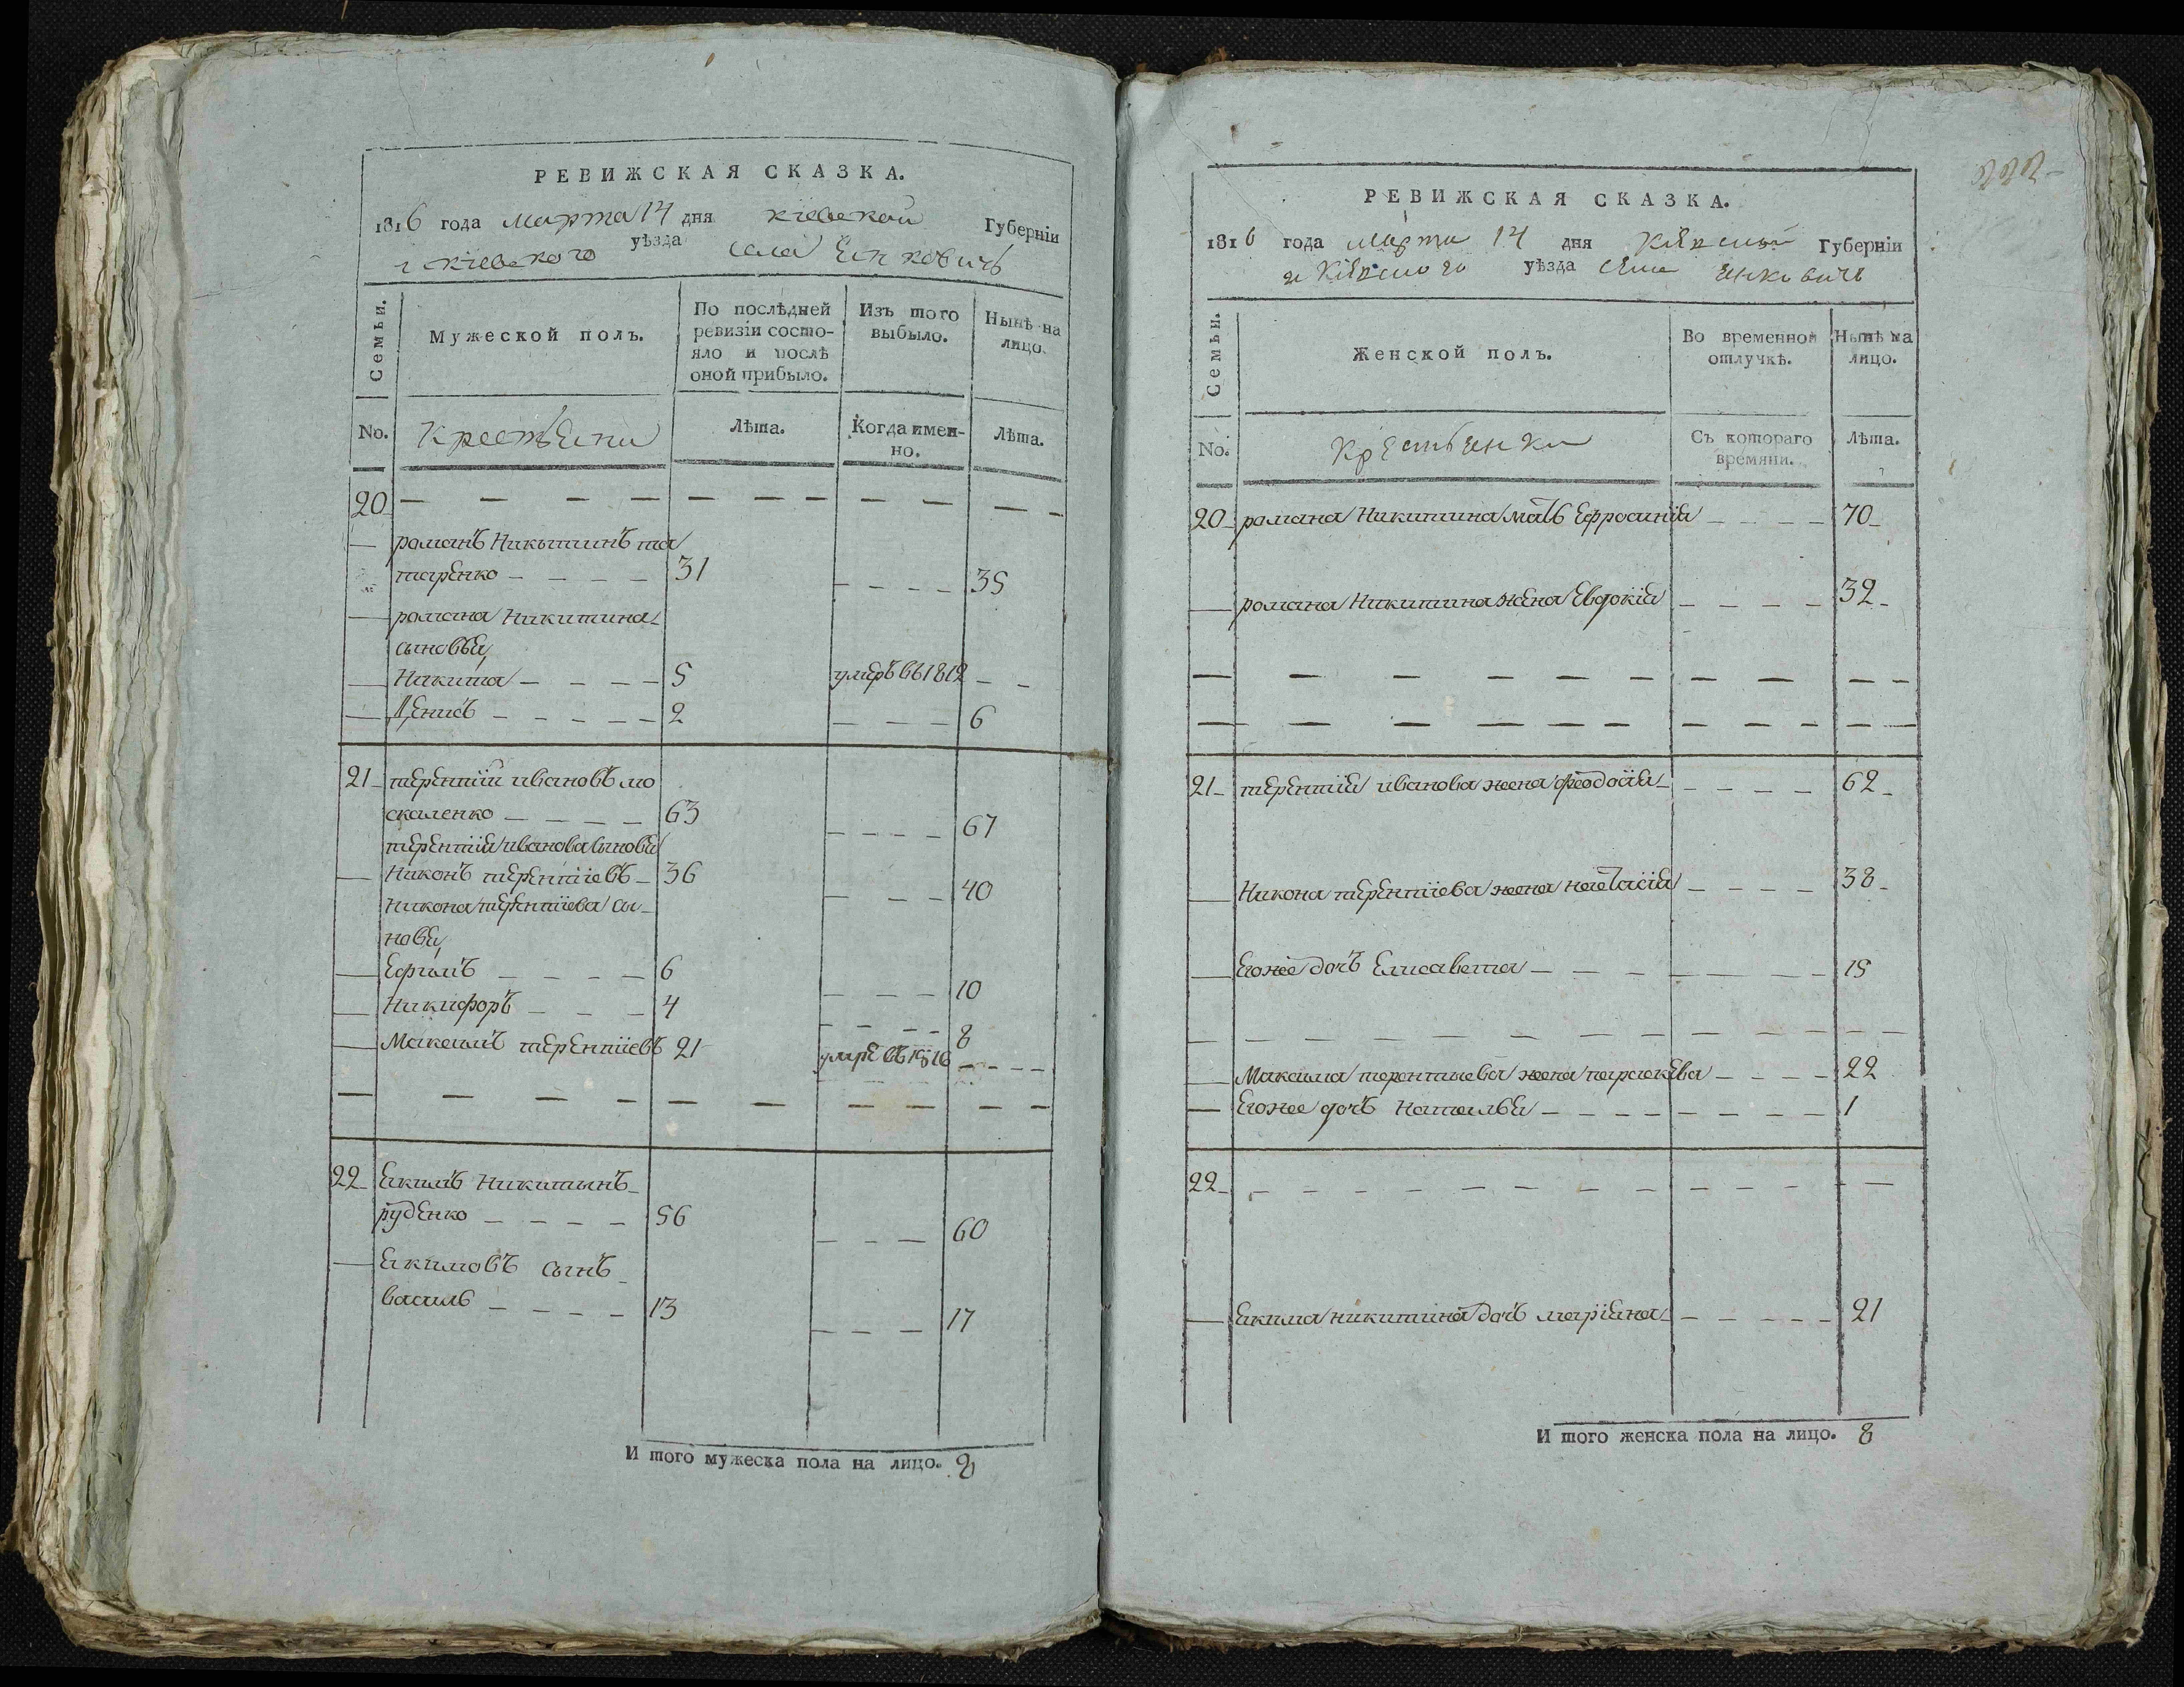 РЕВИЖСКАЯ СКАЗКА.
1816 года марта 14 дня кіевской Губерніи
и кіевского уѣзда села Янковичъ
Семьи.
Мужеской полъ.
По послѣдней ревизіи состояло и послѣ оной прибыло.
Изъ того выбыло.
Нынѣ на лицо.
No.
Крестьяни
Лѣта.
Когда именно.
Лѣта.
20
романъ Никытинъ та
таренко 31 35
романа Никитина
сыновья
Никита 5 умеръ въ 1812
Денисъ 2 6
21 терентий ивановъ мо
скаленко 63 67
терентия иванова сыновя
Никонъ терентіевъ 36 40
никона терентіева сы
новя
Ефимъ 6 10
Никифоръ 4 8
Максимъ терентіевъ 21 умре въ 1816
22 Якимъ Никитынъ
руденко 56 60
Якимовъ сынъ
василь 13 17
И того мужеска пола на лицо. 8
222
РЕВИЖСКАЯ СКАЗКА.
1816 года марта 14 дня Кіевской Губерніи
и Кіевского уѣзда села Янковичъ
Семьи.
Женской полъ.
Во временной отлучкѣ.
Нынѣ на лицо.
No.
Крестьянки
Съ котораго времяни.
Лѣта.
20 романа Никитина мать Ефросиния 70
романа Никитина жена Евдокія 32
21 терентія иванова жена феодосія 62
Никона терентіева жена настасія 38
Егоже дочь Елисавета 15
Максима терентиева жена параскева 22
Егоже дочъ Наталья 1
22
Якима никитина дочъ маріяна 21
И того женска пола на лицо. 8